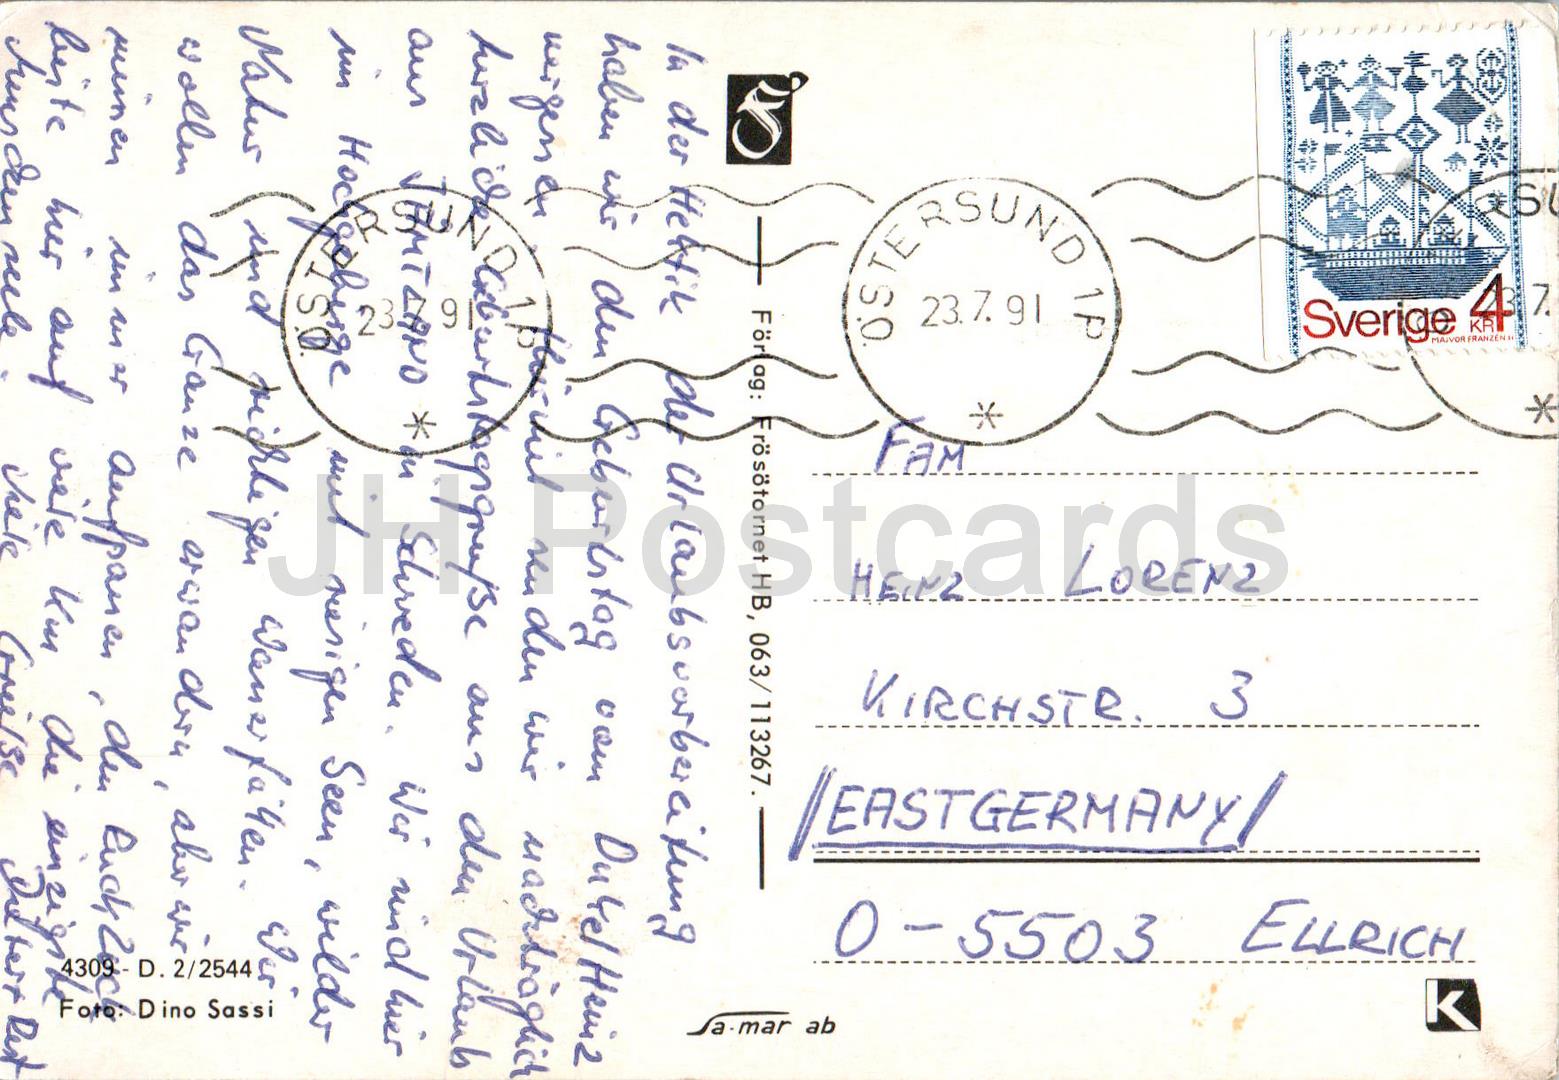 In der Hektik der Urlaubsvorbereitung
haben wir den Geburtstag von Onkel Heinz
vergessen. Hiermit senden wir nachträglich
herzliche Geburtstagsgrüße aus dem Urlaub
aus JÄMTLAND in Schweden. Wir sind hier
im Hochgebirge mit riesigen Seen, wilder
Natur und richtigen Wasserfällen. Wir
wollen das Ganze erwandern, aber wir
müssen immer aufpassen, den Rucksack
viele km, die einzigste
Menschenseele. Viele Grüße
Förlag: Frösötornet HB, 063/113267.
ÖSTERSUND 1P
23.7.91
ÖSTERSUND 1P
23.7.91
Sverige 4 KR
MAJVOR FRANZÉN
FAM
HEINZ LORENZ
KIRCHSTR. 3
/EASTGERMANY/
O-5503 ELLRICH
4309 - D. 2/2544
Foto: Dino Sassi
Sa-mar ab
K
JH Postcards